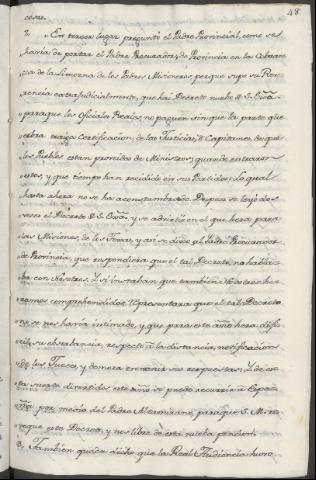 48
cosas.
2. En tercer lugar preguntó el Padre Provincial, como se
havia de portar el Padre Procurador de Provincia en la Cobran-
za de la Limosna de los Padres Misioneros, porque supo su Rev-
rencia extrajudicialmente, que hai Decreto nuebo de S.
paraque los Oficiales Reales no paguen aunque la parte que
cobra traiga Certificacion de las Justicias, o Capitanes de que
los Pueblos estan proveidos de Ministros; quando entraron
estos, y que tiempo han recidido en sus Partidos: Lo qual
hasta ahora no se ha acostumbrado. Despues se leyó dos
veces el Decreto de S. y se advirtio en el que hera para
las Misiones de los Texas, y asi se dixo al Padre Procurador
de Provincia, que respondiera que el tal Decreto no habla-
ba con Nosotros. Y si instaban que tambien Nosotros hera-
mos comprehendidos: Representara que el tal Decreto
no se nos havia intimado, y que para este año hera difi-
cil su observancia, respecto a la distancia, notificacion
de los Jueces, y demora en venir sus respuestas. Y de es-
ta suerte divertidos este año se puede recurrir a Espa-
ña por medio del Padre Altamirano, paraque S. M. re-
voque este Decreto, y nos libre de esta nueba pension.
3. Tambien quedo dicho que la Real Audiencia huvo